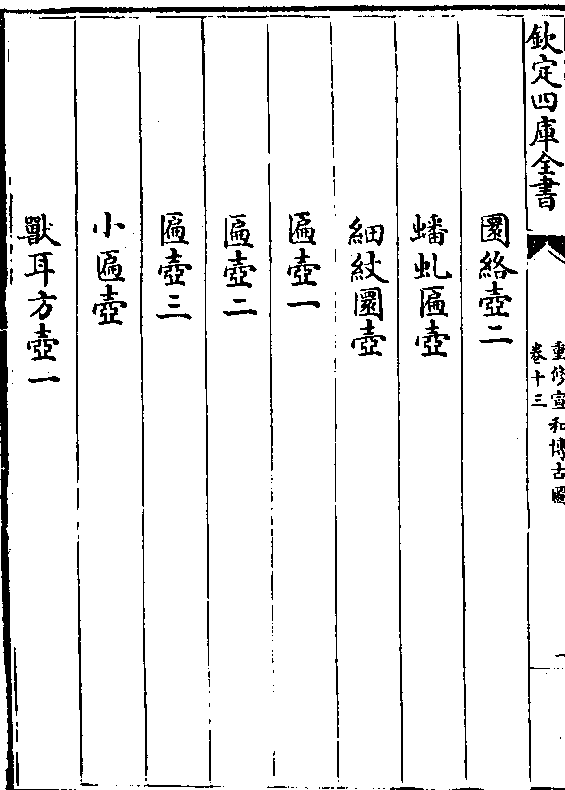 欽定四庫全書
重修宣和博古圖
卷十三
圜絡壺二
蟠虬匾壺
細紋圜壺
匾壺一
匾壺二
匾壺三
小匾壺
獸耳方壺一